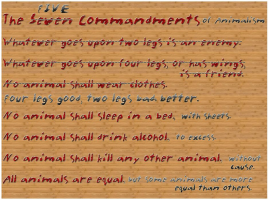 FIVE
The Seven Commandments of Animalism
Whatever goes upon two legs is an enemy.
Whatever goes upon four legs, or has wings,
is a friend.
No animal shall wear clothes.
Four legs good, Two legs bad. better.
No animal shall sleep in a bed. with sheets
No animal shall drink alcohol. To excess.
No animal shall kill any other animal. without
cause.
All animals are equal. but some animals are more
equal than others